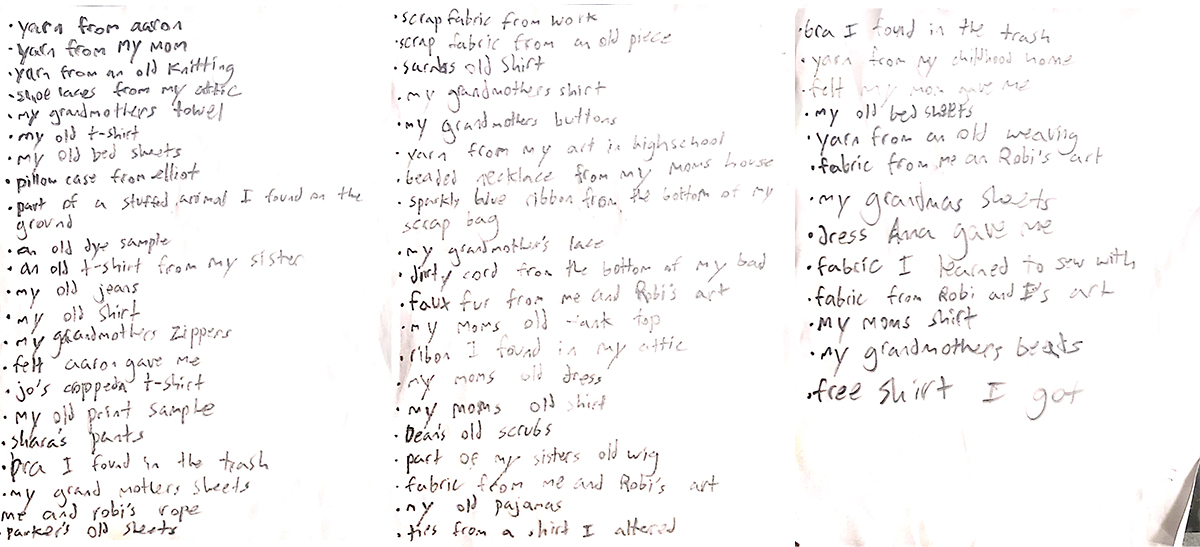 • yarn from aaron
• yarn from my mom
• yarn from an old knitting
• shoe laces from my attic
• my grandmothers towel
• my old t-shirt
• my old bed sheets
• pillow case from elliot
• part of a stuffed animal I found on the
ground
• an old dye sample
• an old t-shirt from my sister
• my old jeans
• my old shirt
• my grandmothers zippers
• felt aaron gave me
• jo's t-shirt
• my old print sample
• shara's pants
• bra I found in the trash
• my grand mothers sheets
me and robi's rope
• parker's old sheets
• scrap fabric from work
• scrap fabric from an old piece
• old shirt
• my grandmothers shirt
• my grandmothers buttons
• yarn from my art in highschool
• beaded necklace from my moms house
• sparkly blue ribbon from the bottom of my
scrap bag
• my grandmother's lace
• dirty cord from the bottom of my bad
• faux fur from me and Robi's art
• my moms old tank top
• ribon I found in my attic
• my moms old dress
• my moms old shirt
• Dean's old scrubs
• part of my sisters old wig
• fabric from me and Robi's art
• my old pajamas
• ties from a shirt I altered
• bra I found in the trash
• yarn from my childhood home
• felt my mom gave me
• my old bed sheets
• yarn from an old weaving
• fabric from me an Robi's art
• my grandmas sheets
• dress Anna gave me
• fabric I learned to sew with
• fabric from Robi and I's art
• my moms shirt
• my grandmothers beads
• free shirt I got